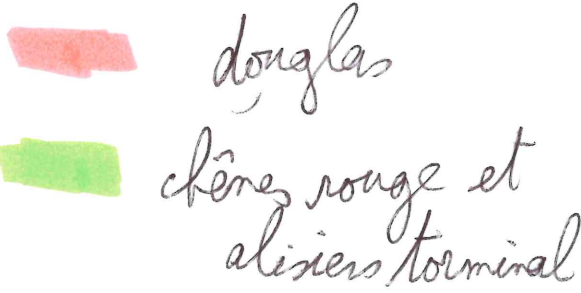 douglas
chênes rouge et
alisiers torminal